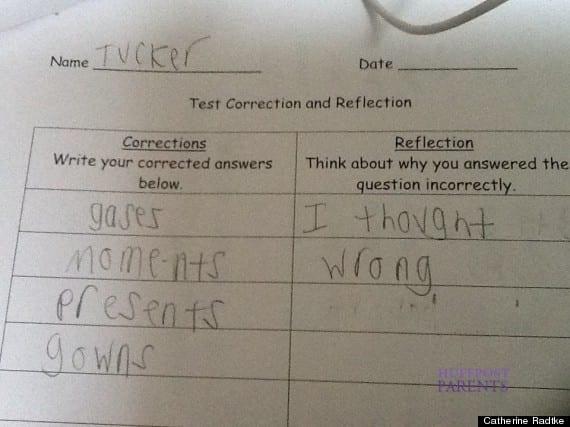 Name Tucker
Date
Test Correction and Reflection
Corrections
Write your corrected answers
below.
Reflection
Think about why you answered the
question incorrectly.
gases
I thought
moments
wrong
presents
gowns
HUFFPOST
PARENTS
Catherine Radtke